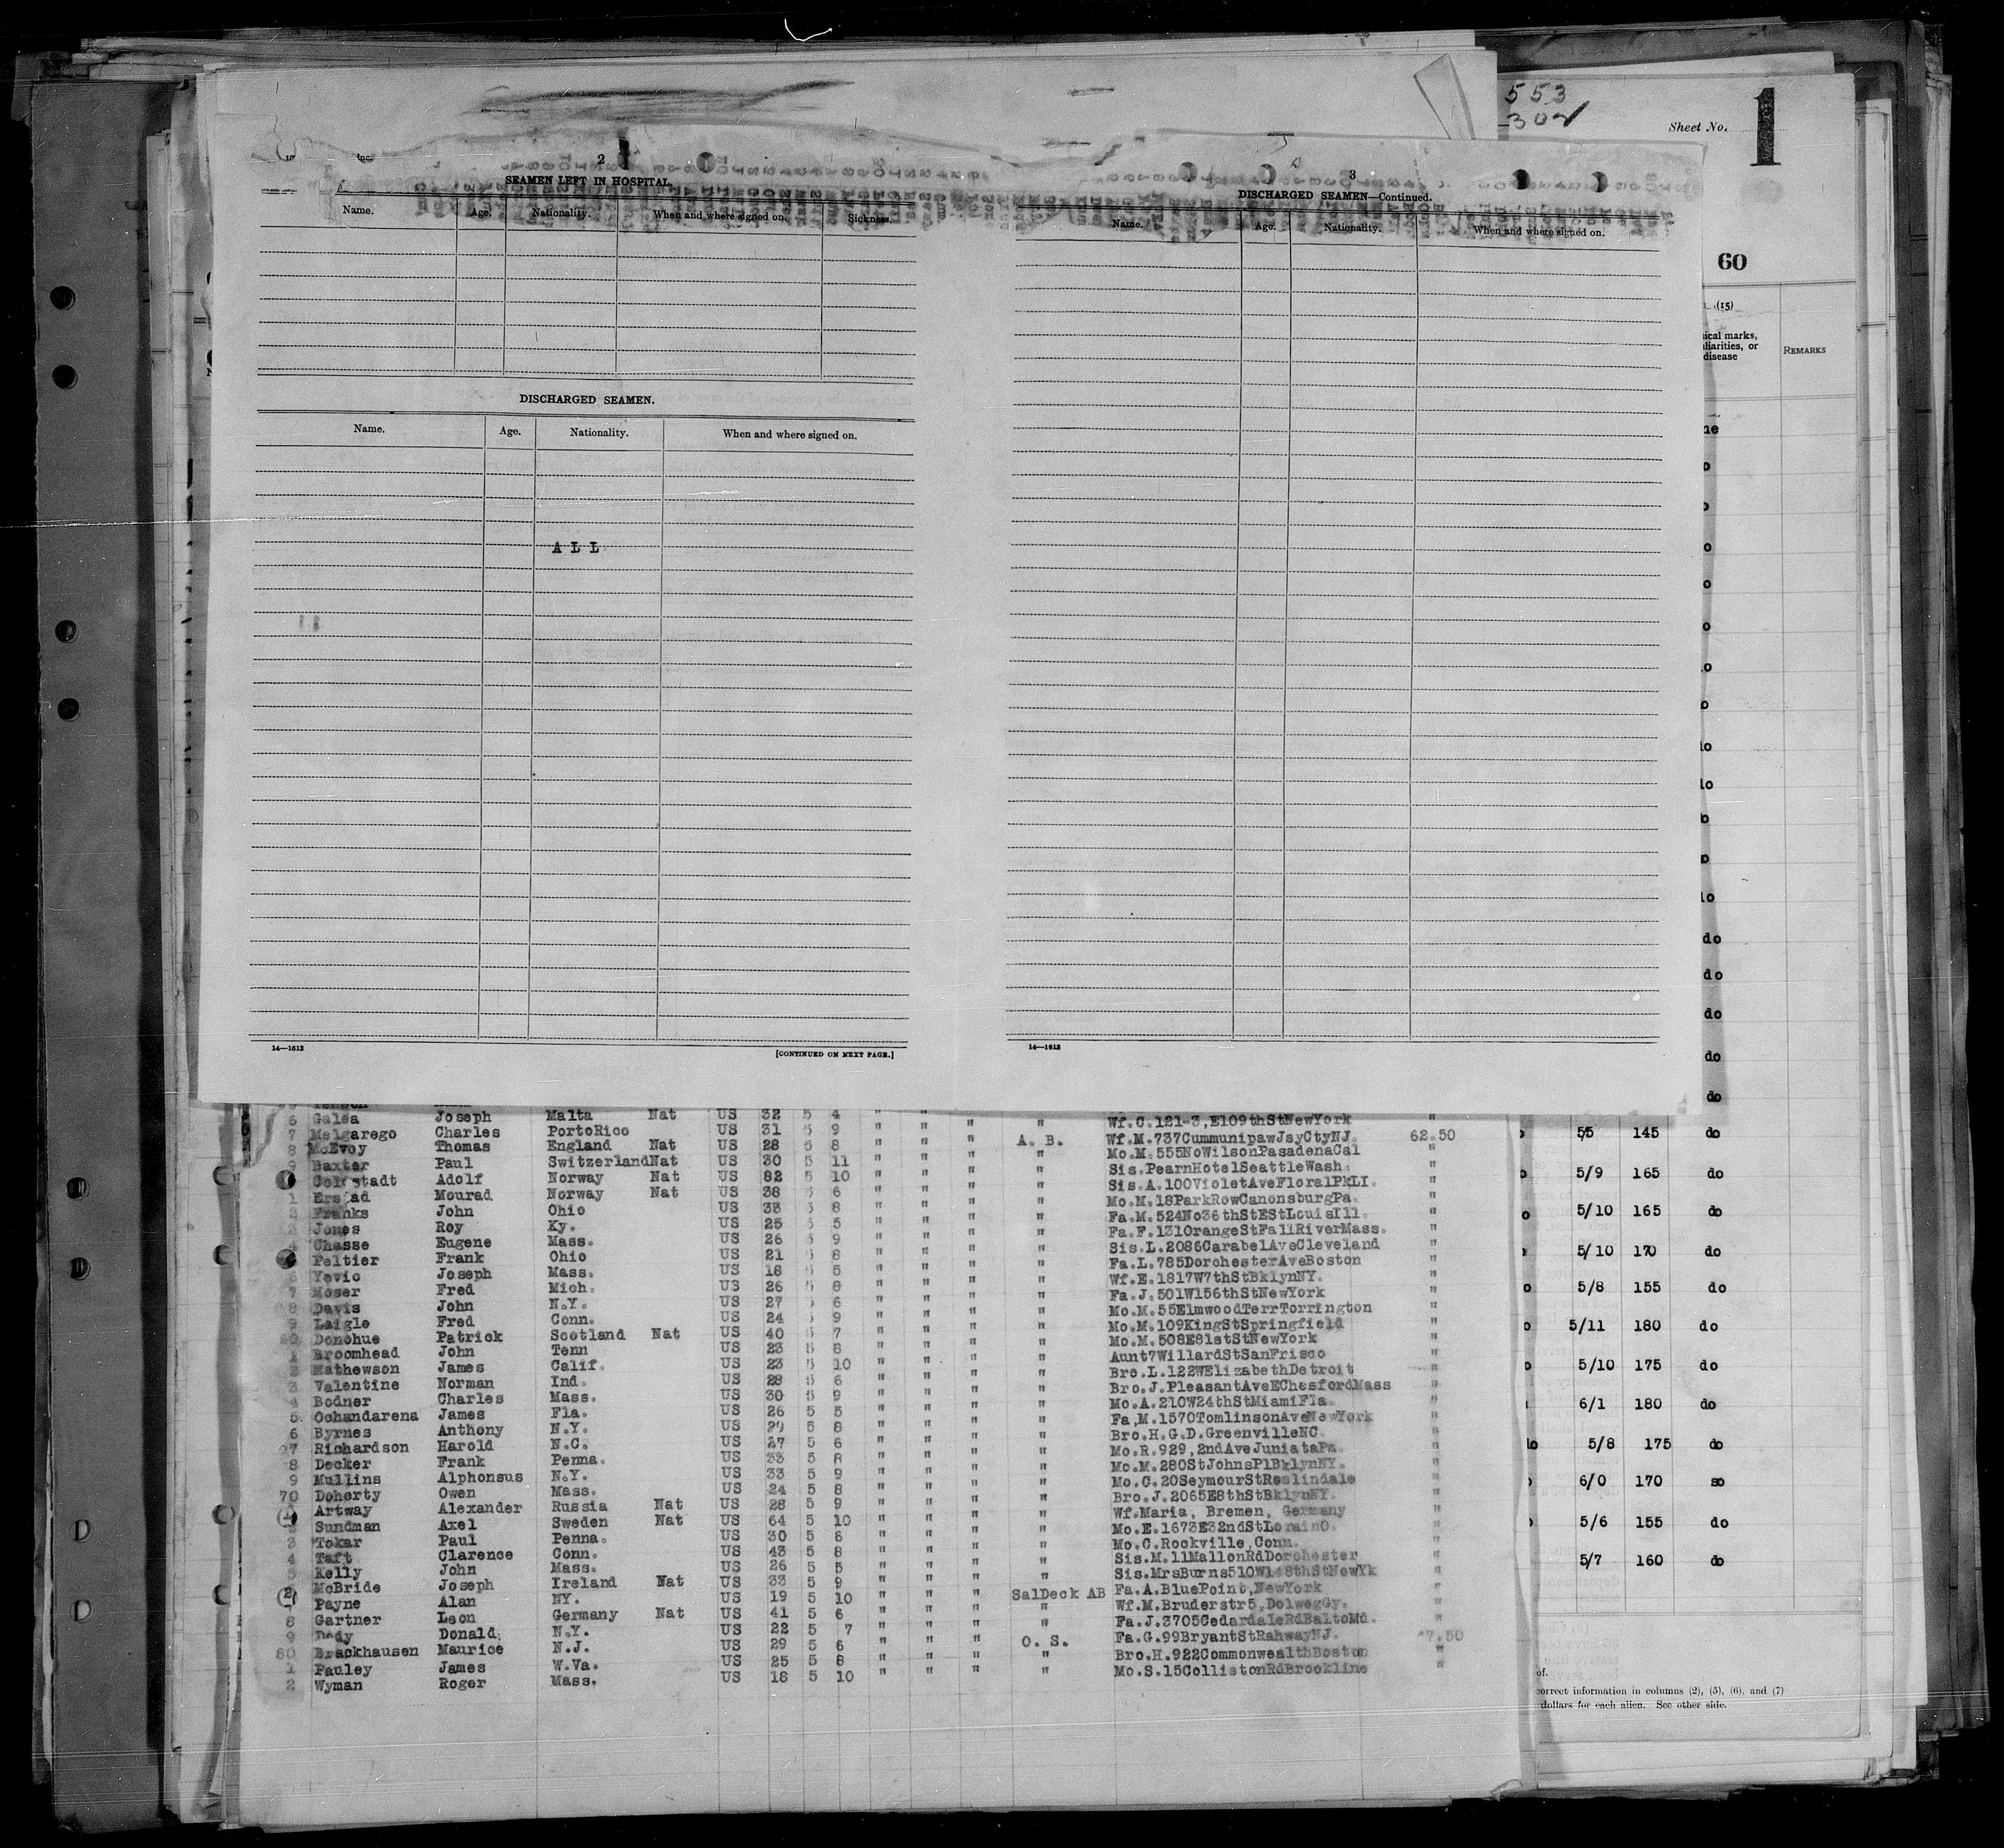 553
302
Sheet No.
1
60
(15)
ical marks,
liarities, or
disease
REMARKS
2
SEAMEN LEFT IN HOSPITAL.
Name. Age. Nationality. When and where signed on. Sickness.
DISCHARGED SEAMEN.
Name. Age. Nationality. When and where signed on.
A L L
14—1613
[CONTINUED ON NEXT PAGE.]
3
DISCHARGED SEAMEN—Continued.
Name. Age. Nationality. When and where signed on.
14—1613
do
do
do
do
do
6 Galea Joseph Malta Nat US 32 5 4 " " " " Wf.C.121-3,E109thStNewYork "
7 Melgarego Charles PortoRico US 31 5 9 " " " A. B. Wf.M.737CummunipawJsyCtyNJ. 62.50
8 McEvoy Thomas England Nat US 28 5 8 " " " " Mo.M.555NoWilsonPasadenaCal "
9 Baxter Paul SwitzerlandNat US 30 5 11 " " " " Sis.PearnHotelSeattleWash. "
Adolf Norway Nat US 82 5 10 " " " " Sis.A.100VioletAveFloralPkLI. "
1 Mourad Norway Nat US 38 5 6 " " " " Mo.M.18ParkRowCanonsburgPa. "
2 Franks John Ohio US 33 5 8 " " " " Fa.M.524No36thStEStLouisIll. "
3 Jones Roy Ky. US 25 5 5 " " " " Fa.F.131OrangeStFallRiverMass. "
Chasse Eugene Mass. US 26 5 9 " " " " Sis.L.2086CarabelAveCleveland "
Peltier Frank Ohio US 21 5 8 " " " " Fa.L.785DorchesterAveBoston "
6 Yevic Joseph Mass. US 18 5 5 " " " " Wf.E.1817W7thStBklynNY. "
7 Moser Fred Mich. US 26 5 8 " " " " Fa.J.501W156thStNewYork "
8 Davis John N.Y. US 27 5 6 " " " " Mo.M.55ElmwoodTerrTorrington "
9 Laigle Fred Conn. US 24 5 9 " " " " Mo.M.109KingStSpringfield "
60 Donohue Patrick Scotland Nat US 40 5 7 " " " " Mo.M.508E81stStNewYork "
1 Broomhead John Tenn US 23 5 8 " " " " Aunt7WillardStSanFrisco "
2 Mathewson James Calif. US 23 5 10 " " " " Bro.L.122WElizabethDetroit "
3 Valentine Norman Ind. US 28 5 6 " " " " Bro.J.PleasantAveEChesfordMass "
4 Bodner Charles Mass. US 30 5 9 " " " " Mo.A.210W24thStMiamiFla. "
5 Ochandarena James Fla. US 26 5 5 " " " " Fa,M.1570TomlinsonAveNewYork "
6 Byrnes Anthony N.Y. US 29 5 8 " " " " Bro.H.G.D.GreenvilleNC. "
7 Richardson Harold N.C. US 27 5 6 " " " " Mo.R.929,2ndAveJuniataPa. "
8 Decker Frank Penna. US 33 5 8 " " " " Mo.M.280StJohnsPlBklynNY. "
9 Mullins Alphonsus N.Y. US 33 5 9 " " " " Mo.C.20SeymourStRoslindale "
70 Doherty Owen Mass. US 24 5 8 " " " " Bro.J.2065E8thStBklynNY. "
1 Artway Alexander Russia Nat US 28 5 9 " " " " Wf.Maria, Bremen, Germany "
2 Sundman Axel Sweden Nat US 64 5 10 " " " " Mo.E.1673E32ndStLorainO. "
3 Tokar Paul Penna. US 30 5 6 " " " " Mo.C.Rockville,Conn. "
4 Taft Clarence Conn. US 43 5 8 " " " " Sis.M.11MallonRdDorchester "
5 Kelly John Mass. US 26 5 5 " " " " Sis.MrsBurns510W148thStNewYk "
McBride Joseph Ireland Nat US 33 5 9 " " " SalDeck AB Fa.A.BluePoint,NewYork "
7 Payne Alan NY. US 19 5 10 " " " " Wf.M.Bruderstr5,DolwegGy. "
8 Gartner Leon Germany Nat US 41 5 6 " " " " Fa.J.3705CedardaleRdBaltoMd. "
9 Donald. N.Y. US 22 5 7 " " " O. S. Fa.G.99BryantStRahwayNJ. 7.50
80 Brackhausen Maurice N.J. US 29 5 6 " " " " Bro.H.922CommonwealthBoston "
1 Pauley James W.Va. US 25 5 8 " " " " Mo.S.15CollistonRdBrookline "
2 Wyman Roger Mass. US 18 5 10
5/5 145 do
5/9 165 do
5/10 165 do
5/10 170 do
5/8 155 do
5/11 180 do
5/10 175 do
6/1 180 do
5/8 175 do
6/0 170 so
5/6 155 do
5/7 160 do
of.
correct information in columns (2), (5), (6), and (7)
dollars for each alien. See other side.